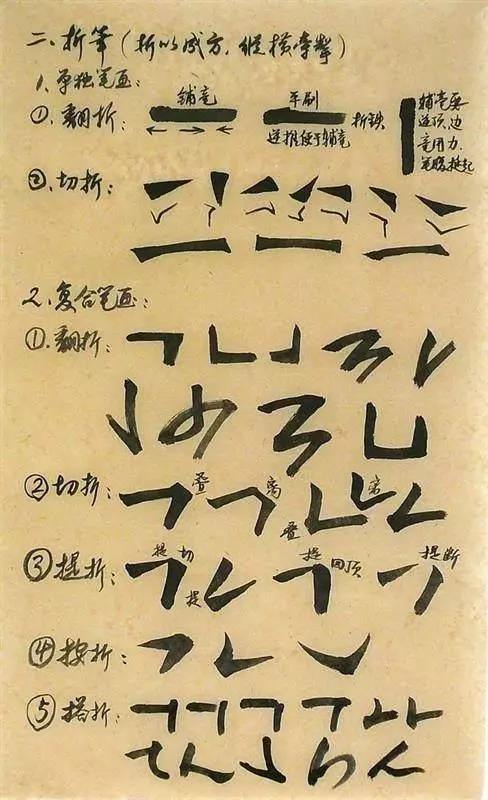 二、折笔（折以成方，纵横牵掣）
1、单独笔画：
①、翻折： 铺毫 平刷 折铁
送推便于铺毫
铺毫要
送顶、边
毫用力、
笔腹挺起
②、切折：
2、复合笔画：
①、翻折：
②切折： 叠 离 叠 离
③提折： 提 切 提 提 回顶 提断
④按折：
⑤搭折：